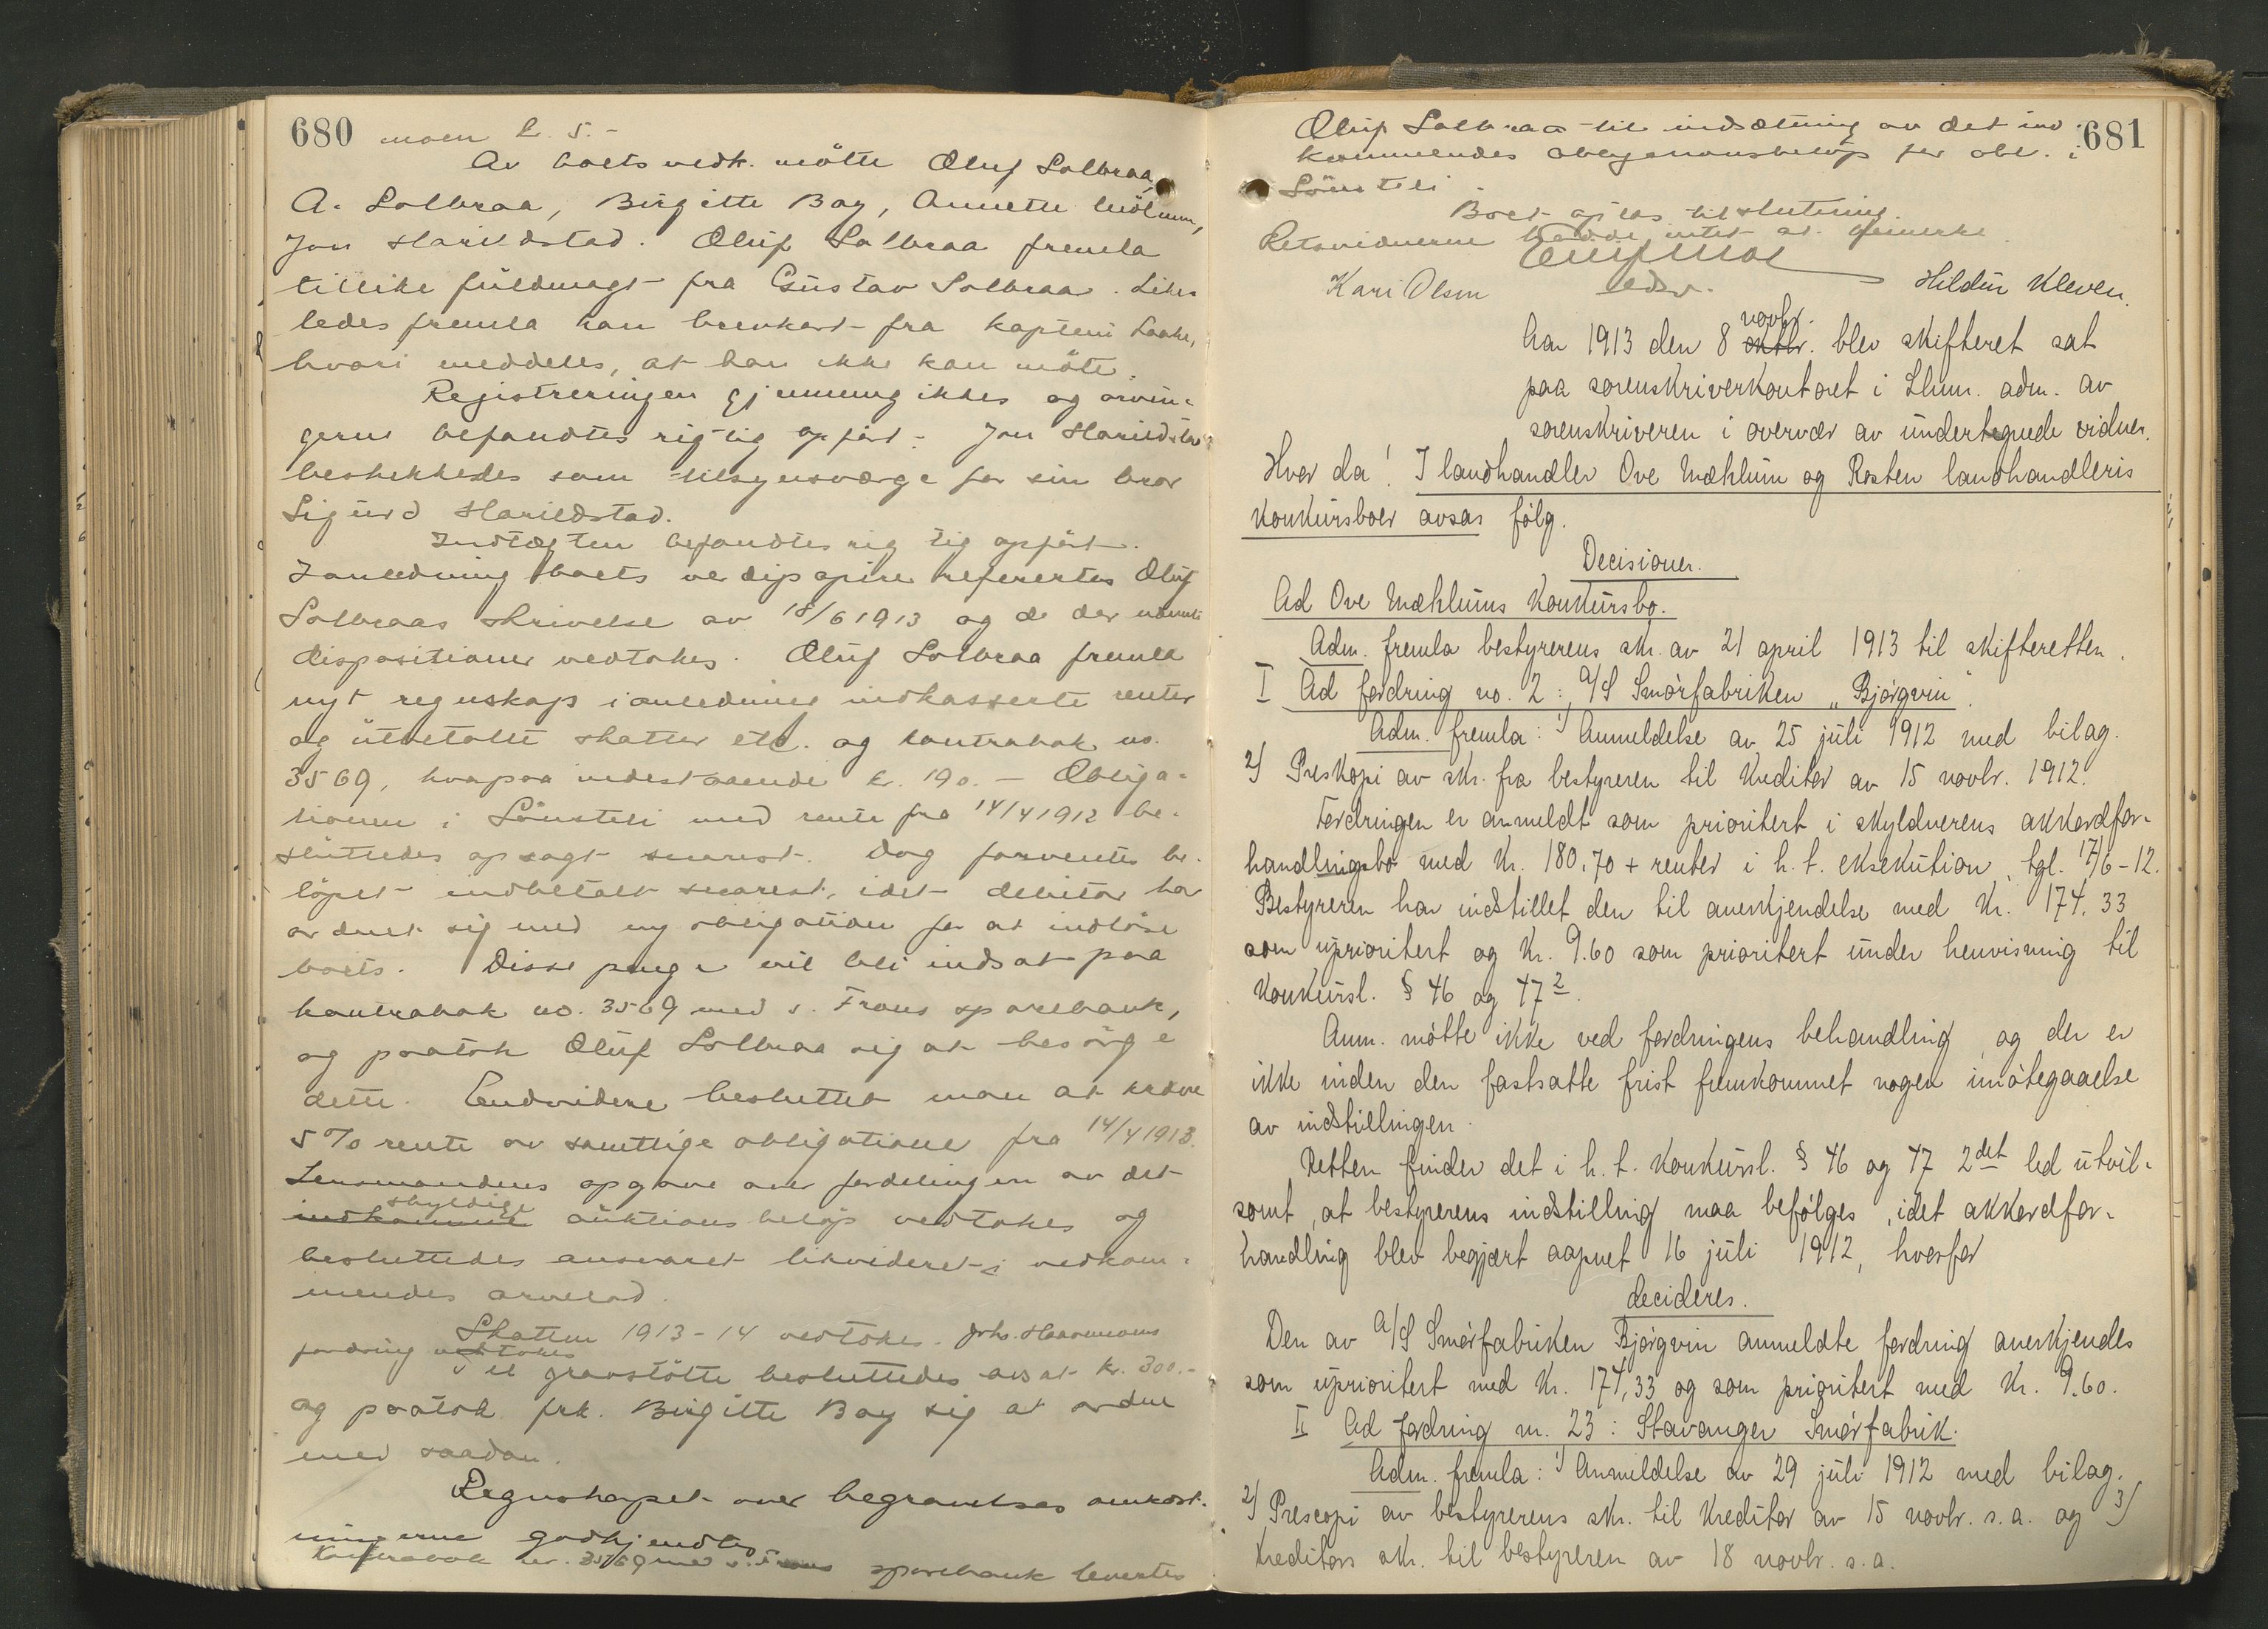 680
moen k. 5.-
Av boets vedk. mötte Oluf Solbraa,
A. Solbraa, Birgitte Bay, Annette
Jon Harildstad. Oluf Solbraa fremla
tillike fuldmagt fra Gustav Solbraa. Likes
ledes fremla han brevkort fra kaptein
hvori meddeles, at han ikke kan møte.
Registreringen gjennemgikkes og arvin-
gerne befandtes rigtig opført. Jon Harildstad
beskikkedes som tilsynsværge for sin bror
Sigurd Harildstad.
Indtægten befandtes rigtig opført.
I anledning boets verdipapirer refertes Oluf
Solbraas skrivelse av 18/6 1913 og de der nævnte
dispositioner vedtokes. Oluf Solbraa fremla
nyt regnskap i anledning indkasserte renter
og utbetalte skatter etc. og kontrabok no.
3569, hvorpaa indestaaende kr. 190.- Obliga-
tionen i Lönsteli med rente fra 14/4 1912 be-
sluttedes opsagt snarest. Dog forventes be-
löpet indbetalt snarest, idet debitor har
ordnet sig med ny obligation for at indløse
boets. Disse penge vil bli indsat paa
kontrabok no. 3569 med s. Frons sparebank,
og paatok Oluf Solbraa sig at besørge
dette. Endvidere besluttet man at kræve
5% rente av samtlige obligationer fra 14/4 1913.
Lensmandens opgave over fordelingen av det
skyldige
indkomne auktionsbeløp vedtokes og
besluttedes ansvaret likvideret i vedkom-
mendes arvelod.
Skatten 1913-14 vedtokes.
fordring vedtokes
Til gravstötte besluttedes avsat kr. 300.-
og paatok frk. Birgitte Bay sig at ordne
med saadan.
Regnskapet over begravelsesomkost-
ningerne godkjendtes
Kontrabok nr. 3569 med s. Frons sparebank levertes
681
Oluf Solbraa til indsætning av det ind-
kommendes obligationsbeløp for obl. i
Lönsteli.
Boet optas til slutning.
Retsvidnerne hadde intet at bemerke.
Kari Olsen
edsv.
Hildur Kleven.
novbr.
Aar 1913 den 8 oktbr. blev skifteret sat
paa sorenskriverkontoret i Lhmr. adm. av
sorenskriveren i overvær av undertegnede vidner.
Hvor da! I landhandler Ove Mæhlum og Rosten landhandleris
konkursboer avsas følg.
Decisioner.
Ad Ove Mæhlums konkursbo.
Adm. fremla bestyrerens skr. av 21 april 1913 til skifteretten.
I Ad fordring no. 2: A/S Smörfabriken „Bjørgvin".
Adm. fremla: 1) Anmeldelse av 25 juli 1912 med bilag.
2) Preskopi av skr. fra bestyreren til kreditor av 15 novbr. 1912.
Fordringen er anmeldt som prioritert i skyldnerens akkordfor-
handlingsbo med kr. 180,70 + renter i h. t. eksekution, tgl. 17/6-12.
Bestyreren har indstillet den til anerkjendelse med kr. 174,33
som uprioritert og kr. 9.60 som prioritert under henvisning til
konkursl. § 46 og 47 2.
Anm. møtte ikke ved fordringens behandling, og der er
ikke inden den fastsatte frist fremkommet nogen imøtegaaelse
av indstillingen.
Retten finder det i h. t. konkursl. § 46 og 47 2det led utvil-
somt, at bestyrerens indstilling maa befølges, idet akkordfor-
handling blev begjært aapnet 16 juli 1912, hvorfor
decideres.
Den av A/S Smörfabriken Bjørgvin anmeldte fordring anerkjendes
som uprioritert med kr. 174,33 og som prioritert med kr. 9.60.
II Ad fordring nr. 23: Stavanger Smörfabrik.
Adm. fremla: 1) Anmeldelse av 29 juli 1912 med bilag.
2) Prescopi av bestyrerens skr. til kreditor av 15 novbr. s.a. og 3)
kreditors skr. til bestyreren av 18 novbr. s.a.